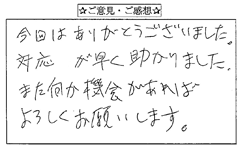 ☆ご意見・ご感想☆
今回はありがとうございました。
対応 が早く助かりました。
また何か機会があれば
よろしくお願いします。